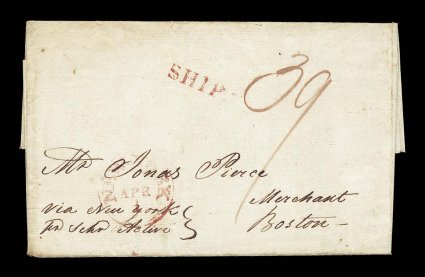 SHIP
39
Mr Jonas Pierce
2 APR
Merchant
via New York
Boston
pr Schr Active